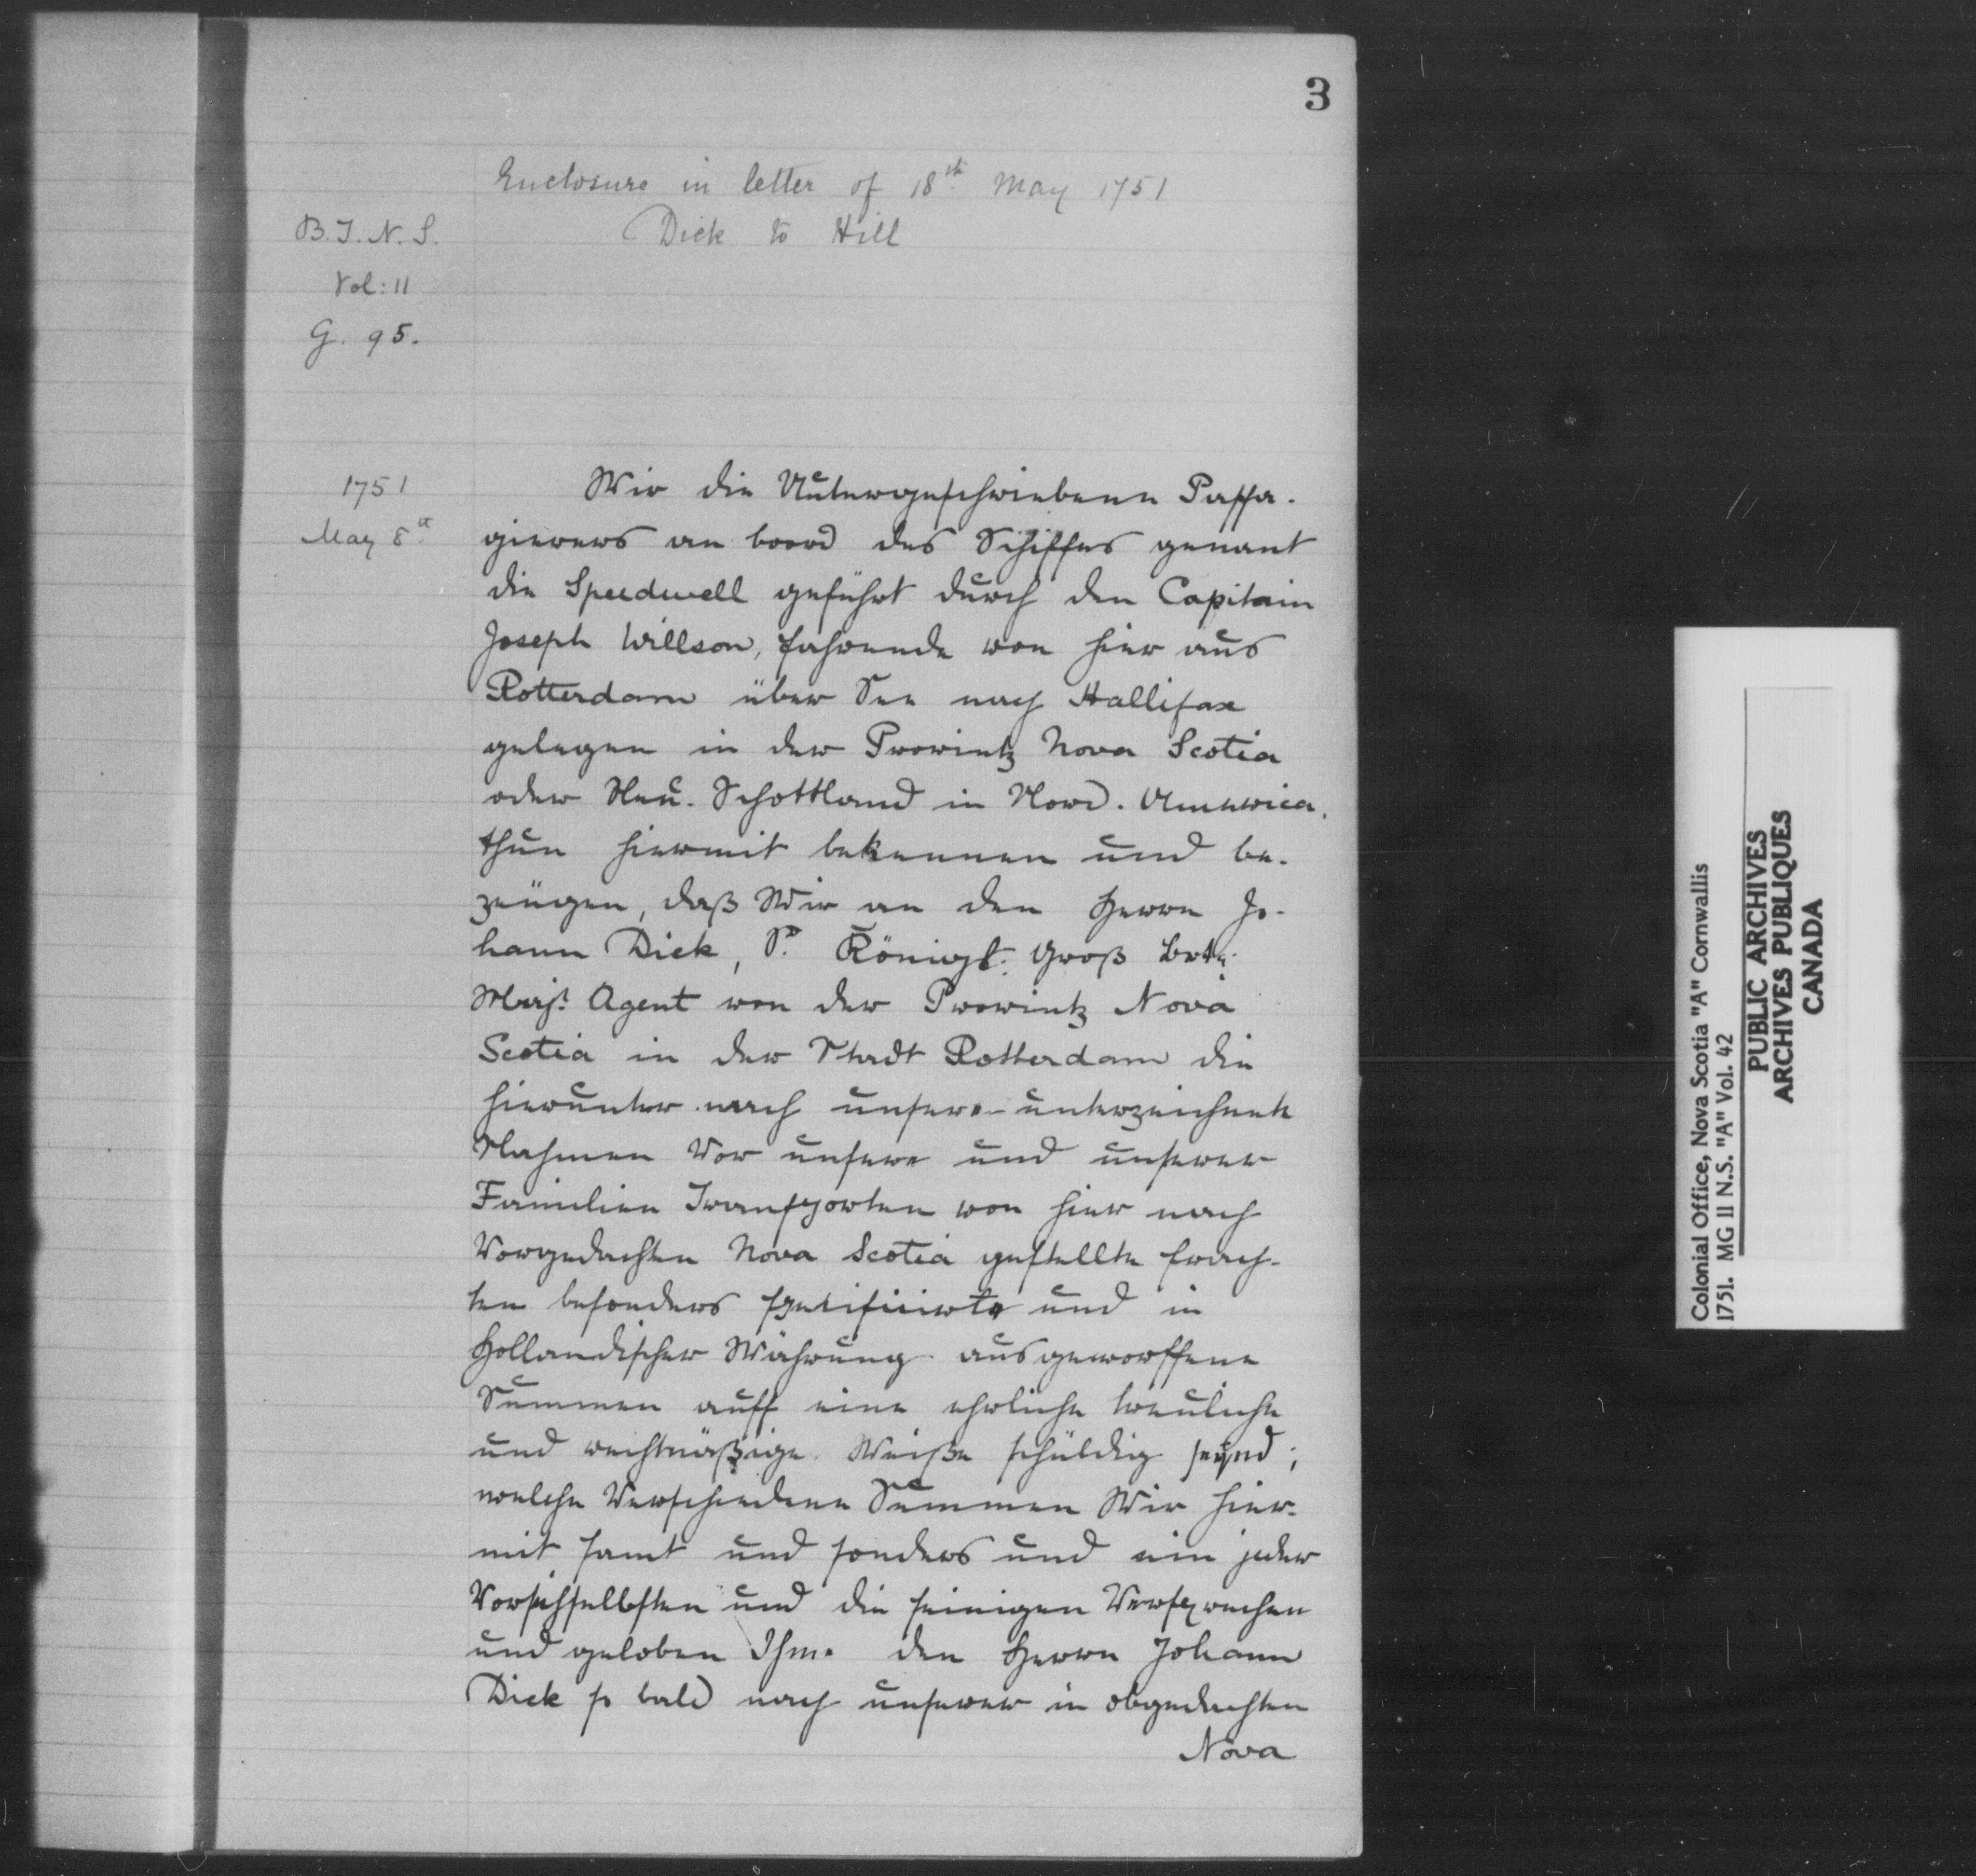 3
Enclosure in letter of 18th May 1751
Dick to Hill
B.T.N.S.
Vol: 11
G. 95.
1751
May 8th
Wir die Untergeschriebene Passa-
gierers an boord des Schiffes genant
die Speedwell geführt durch den Capitain
Joseph Willson, fahrende von hier aus
Rotterdam über See nach Hallifax
gelegen in der Provintz Nova Scotia
oder Neu-Schottland in Nord-America,
thun hiermit bekennen und be-
zeugen, daß Wir an den Herrn Jo-
hann Dick, Sr. Königl. Groß Brt:
Majt. Agent von der Provintz Nova
Scotia in der Stadt Rotterdam die
hierunter nach unsere unterzeichnete
Nahmen Vor unsere und unserer
Familien Transporten von hier nach
Vorgedachten Nova Scotia gestellte frach-
ten besonders specificirte und in
Hollandischer Währung ausgeworffene
Summen auff eine ehrliche treuliche
und rechtmäßige Weiße schuldig seynd;
welche Verschiedene Summen Wir hier-
mit samt und sonders und ein jeder
Vorsichselbsten und die seinigen Versprechen
und geloben Ihme den Herrn Johann
Dick so bald nach unserer in obgedachten
Nova
Colonial Office, Nova Scotia "A" Cornwallis
1751. MG 11 N.S. "A" Vol. 42
PUBLIC ARCHIVES
ARCHIVES PUBLIQUES
CANADA